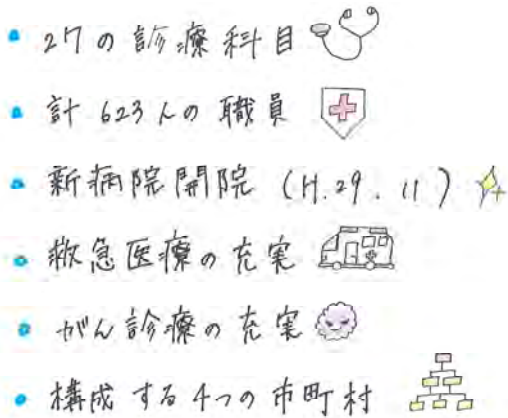 ・27の診療科目
・計623人の職員
・新病院開院 (H.29.11)
・救急医療の充実
・がん診療の充実
・構成する4つの市町村